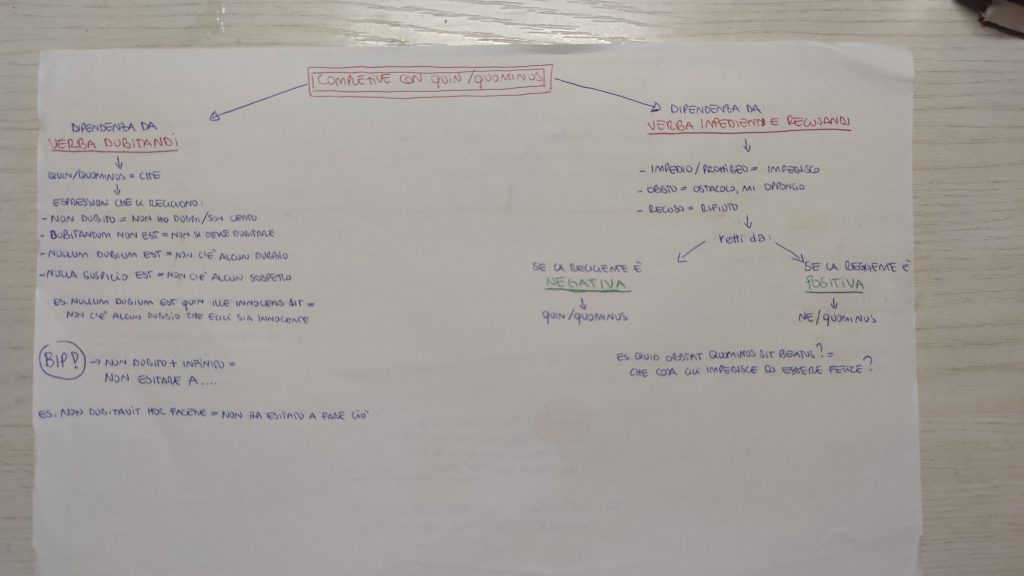 COMPLETIVE CON QUIN/QUOMINUS
DIPENDENZA DA
VERBA DUBITANDI
QUIN/QUOMINUS = CHE
ESPRESSIONI CHE LI REGGONO:
- NON DUBITO = NON HO DUBBI/SON CERTO
- DUBITANDUM NON EST = NON SI DEVE DUBITARE
- NULLUM DUBIUM EST = NON C'È ALCUN DUBBIO
- NULLA SUSPICIO EST = NON C'È ALCUN SOSPETTO
ES. NULLUM DUBIUM EST QUIN ILLE INNOCENS SIT =
NON C'È ALCUN DUBBIO CHE EGLI SIA INNOCENTE
BIP! → NON DUBITO + INFINITO =
NON ESITARE A....
ES. NON DUBITAVIT HOC FACERE = NON HA ESITATO A FARE CIÒ
DIPENDENZA DA
VERBA IMPEDIENDI E RECUSANDI
- IMPEDIO/PROHIBEO = IMPEDISCO
- OBSTO = OSTACOLO, MI OPPONGO
- RECUSO = RIFIUTO
retti da:
SE LA REGGENTE È
NEGATIVA
QUIN/QUOMINUS
SE LA REGGENTE È
POSITIVA
NE/QUOMINUS
ES. QUID OBSTAT QUOMINUS SIT BEATUS? =
CHE COSA GLI IMPEDISCE DI ESSERE FELICE?